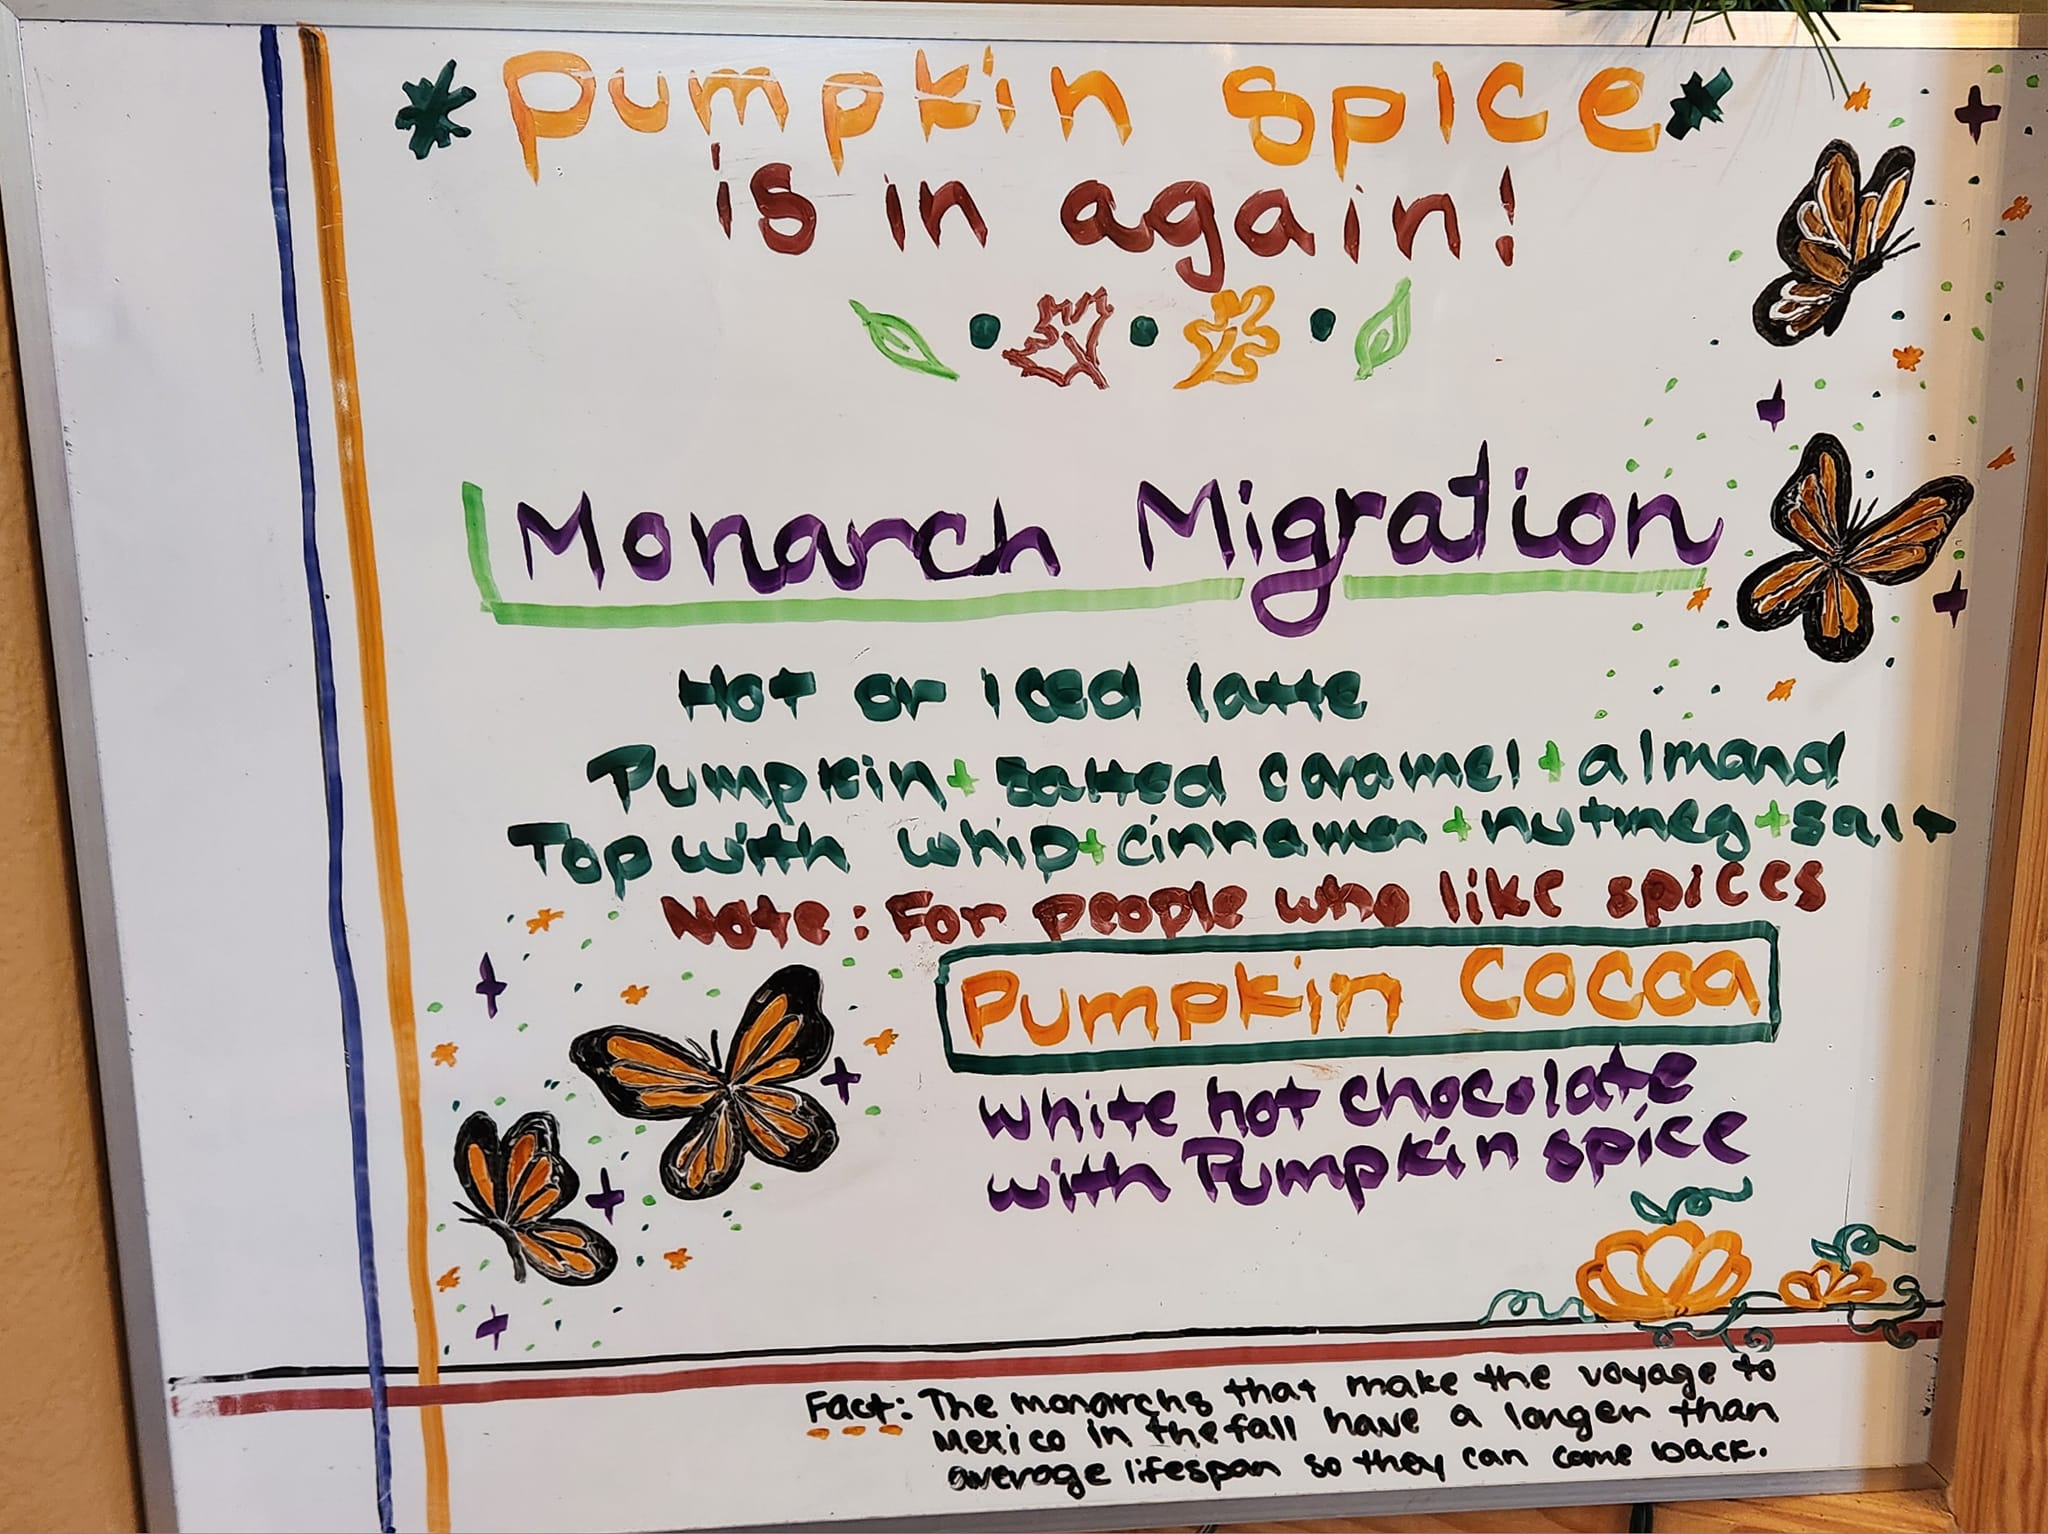 Pumpkin Spice
is in again!
Monarch Migration
Hot or iced latte
Pumpkin + salted caramel + almond
Top with whip + cinnamon + nutmeg + salt
Note: For people who like spices
Pumpkin Cocoa
white hot chocolate
with Pumpkin spice
Fact: The monarchs that make the voyage to
Mexico in the fall have a longer than
average lifespan so they can come back.